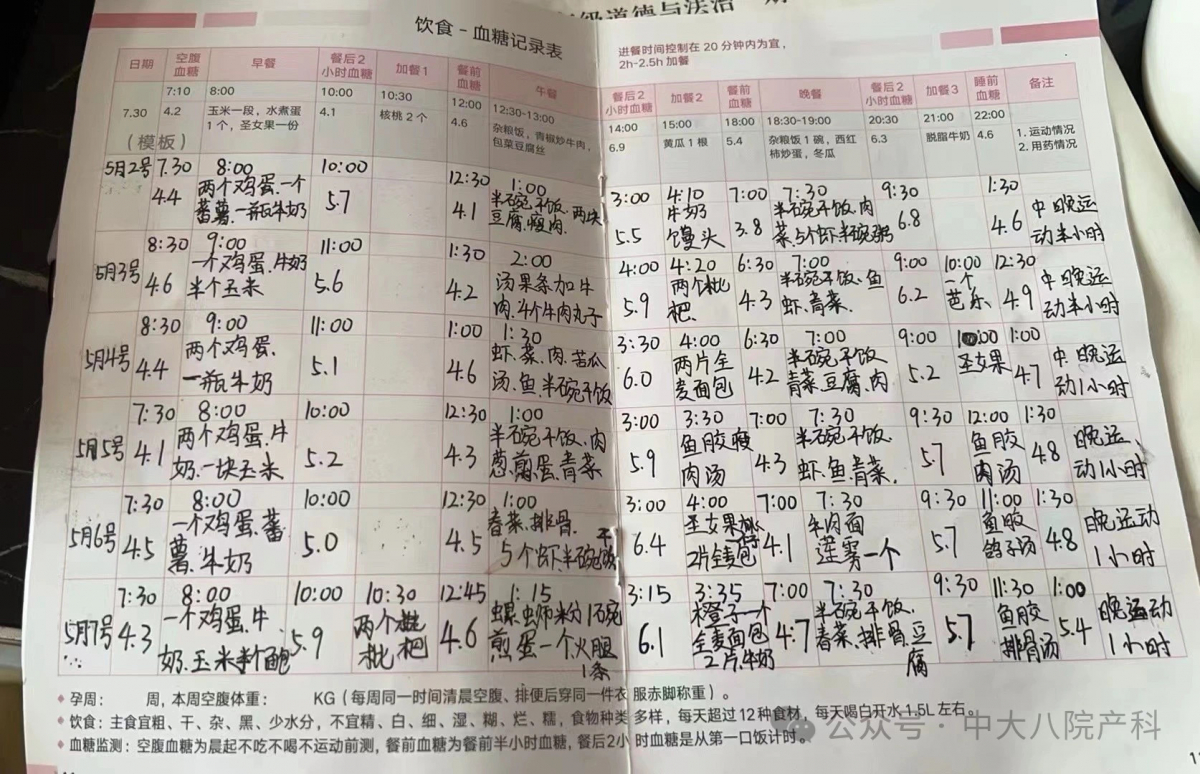 级道德与法治
饮食 - 血糖记录表
进餐时间控制在 20 分钟内为宜，
2h-2.5h 加餐
日期 空腹血糖 早餐 餐后2小时血糖 加餐1 餐前血糖 午餐 餐后2小时血糖 加餐2 餐前血糖 晚餐 餐后2小时血糖 加餐3 睡前血糖 备注
7:10 8:00 10:00 10:30 12:00 12:30-13:00 14:00 15:00 18:00 18:30-19:00 20:30 21:00 22:00
7.30 4.2 玉米一段，水煮蛋1个，圣女果一份 4.1 核桃 2 个 4.6 杂粮饭，青椒炒牛肉，包菜豆腐丝 6.9 黄瓜 1 根 5.4 杂粮饭 1 碗，西红柿炒蛋，冬瓜 6.3 脱脂牛奶 4.6 1. 运动情况 2. 用药情况
（模板）
5月2号 7.30 8:00 10:00 12:30 1:00 3:00 4:10 7:00 7:30 9:30 1:30
4.4 两个鸡蛋.一个蕃薯.一瓶牛奶 5.7 4.1 半碗干饭.豆腐.瘦肉.两块 5.5 牛奶馒头 3.8 半碗干饭.肉菜.5个虾半碗粥 6.8 4.6 中.晚运动半小时
5月3号 8:30 9:00 11:00 1:30 2:00 4:00 4:20 6:30 7:00 9:00 10:00 12:30
4.6 一个鸡蛋.牛奶半个玉米 5.6 4.2 汤果条加牛肉.4个牛肉丸子 5.9 两个枇杷. 4.3 半碗干饭.鱼虾.青菜. 6.2 一个芭乐 4.9 中.晚运动半小时
5月4号 8:30 9:00 11:00 1:00 1:30 3:30 4:00 6:30 7:00 9:00 10:00 1:00
4.4 两个鸡蛋.一瓶牛奶 5.1 4.6 虾.菜.肉.苦瓜汤.鱼.半碗干饭 6.0 两片全麦面包 4.2 半碗干饭青菜.豆腐.肉 5.2 圣女果 4.7 中.晚运动1小时
5月5号 7:30 8:00 10:00 12:30 1:00 3:00 3:30 7:00 7:30 9:30 12:00 1:30
4.1 两个鸡蛋.牛奶.一块玉米 5.2 4.3 半碗干饭.肉葱煎蛋.青菜 5.9 鱼胶瘦肉汤 4.3 半碗干饭.虾.鱼.青菜. 5.7 鱼胶肉汤 4.8 晚运动1小时
5月6号 7:30 8:00 10:00 12:30 1:00 3:00 4:00 7:00 7:30 9:30 11:00 1:30
4.5 一个鸡蛋.蕃薯.牛奶 5.0 4.5 春菜.排骨.5个虾.半碗干 6.4 圣女果 2片全麦包 4.1 牛肉面莲雾一个 5.7 鱼胶鸽子汤 4.8 晚运动1小时
5月7号 7:30 8:00 10:00 10:30 12:45 1:15 3:15 3:35 7:00 7:30 9:30 11:30 1:00
4.3 一个鸡蛋.牛奶.玉米半个 5.9 两个枇杷 4.6 螺蛳粉1碗煎蛋一个火腿1条 6.1 橙子一个全麦面包2片.牛奶 4.7 半碗干饭.春菜.排骨.豆腐 5.7 鱼胶排骨汤 5.4 晚运动1小时
孕周： 周，本周空腹体重： KG（每周同一时间清晨空腹、排便后穿同一件衣服赤脚称重）。
饮食：主食宜粗、干、杂、黑、少水分，不宜精、白、细、湿、糊、烂、糯，食物种类多样，每天超过12种食材，每天喝白开水 1.5L 左右。
血糖监测：空腹血糖为晨起不吃不喝不运动前测，餐前血糖为餐前半小时血糖，餐后2小时血糖是从第一口饭计时。
公众号 · 中大八院产科